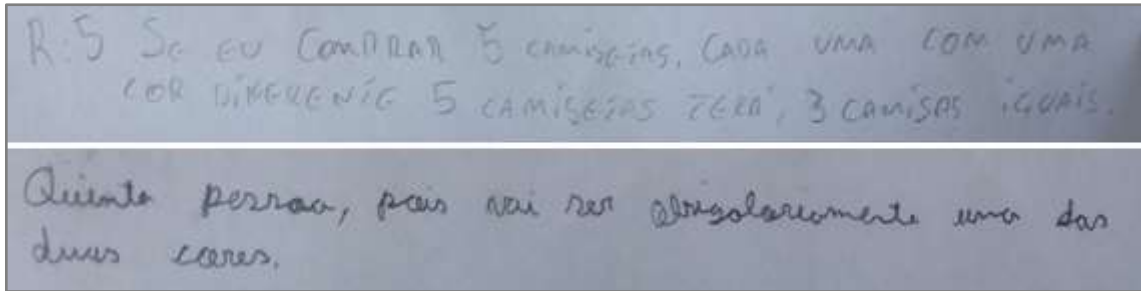 R:5 SE EU COMPRAR 5 CAMISETAS, CADA UMA COM UMA
COR DIFERENTE 5 CAMISETAS TERÁ, 3 CAMISAS IGUAIS.
Quinta pessoa, pois vai ser obrigatoriamente uma das
duas cores.